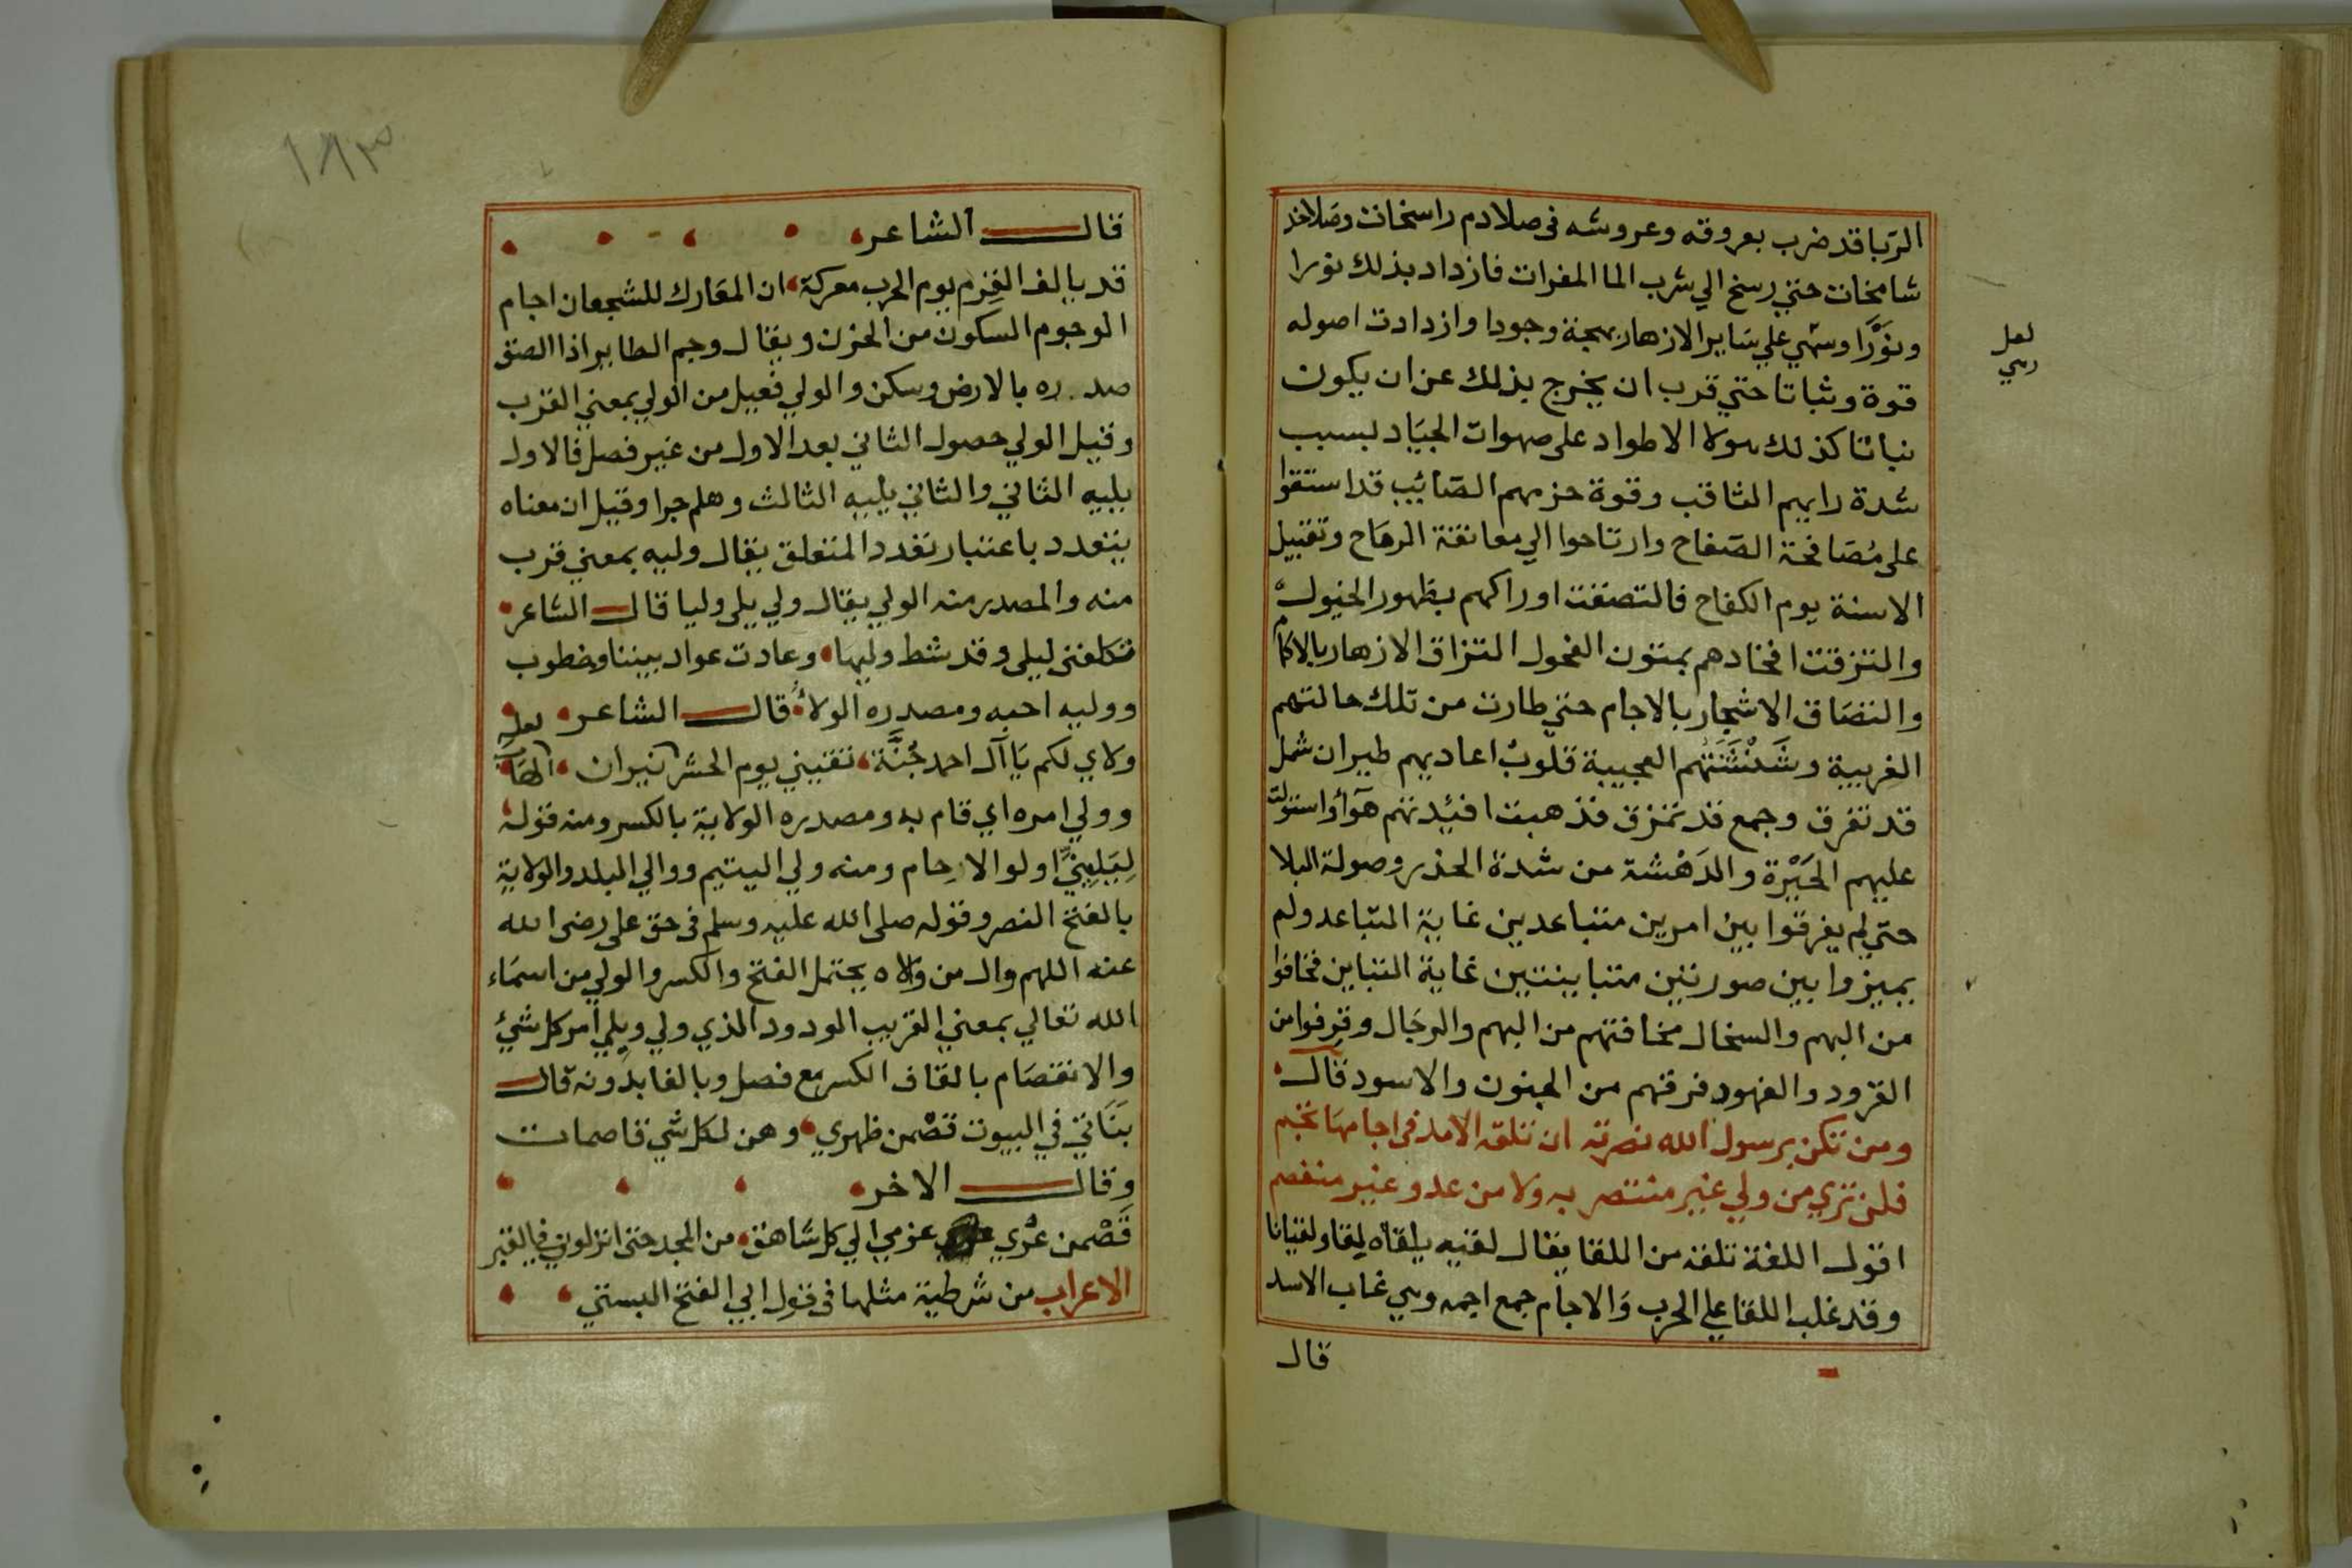 الربا قد ضرب بعروقه وعروشه فى صلادم راسخات وصلاخد
شامخات حتي رسخ الي شرب الما المفرات فازداد بذلك نورا
ونَوْرًا وسمي علي ساير الازهار بهجة وجودا وازدادت اصوله
لعل
رسي
قوة وثباتا حتي قرب ان يخرج بذلك عن ان يكون
نباتا كذلك هولا الاطواد على صهوات الجياد بسبب
شدة رايهم الثاقب وقوة حزمهم الصائيب قد استقوا
على مصافحة الصفاح وارتاحوا الي معانقة الرماح وتقبيل
الاسنة يوم الكفاح فالتصقت اوراكهم بظهور الخيول
والتزقت افخادهم بمتون الفحول التزاق الازهار بالاكمام
والتصاق الاشجار بالاجام حتي طارت من تلك حالتهم
الغريبة وشَنْشَنَتهم العجيبة قلوب اعاديهم طيران شمل
قد تفرق وجمع قد تمزق فذهبت افئيدتهم هوآ واستولت
عليهم الحَيْرة والدَهْشة من شدة الحذر وصولة البلا
حتي لم يفرقوا بين امرين متباعدين غاية التباعد ولم
يميزوا بين صورتين متباينتين غاية التباين فخافوا
من البهم والسخال مخافتهم من البهم والرجال وفرقوا من
القرود والفهود فرقهم من الجنون والاسود قال
ومن تكن برسول الله نصرته ان تلقه الاسد فى اجامها تجم
فلن تري من ولي غير منتصر به ولا من عدو غير منفصم
اقول اللغة تلقه من اللقا يقال لقيه يلقاه لقا ولقيانا
وقد غلب اللقا علي الحرب والاجام جمع اجمه وهي غاب الاسد
قال
١٨٣
قال الشاعر
قد يالف الفرم يوم الحرب معركة ان المعارك للشجعان اجام
الوجوم السكون من الحزن ويقال وجم الطاير اذا الصق
صدره بالارض وسكن والولي فعيل من الولي بمعني القرب
وقيل الولي حصول الثاني بعد الاول من غير فصل فالاول
يليه الثاني والثاني يليه الثالث وهلم جرا وقيل ان معناه
يتعدد باعتبار تعدد المتعلق يقال وليه بمعني قرب
منه والمصدر منه الولي يقال ولي يلي وليا قال الشاعر
تكلفنى ليلى وقد شط وليها وعادت عواد بيننا وخطوب
ووليه احبه ومصدره الولاء قال الشاعر
لعله
ولاي لكم يا آل احمد جُنَّة تقيني يوم الحشر نيران الهاب
وولي امره اي قام به ومصدره الولاية بالكسر ومنه قوله
لِيَلِيَنِّي اولوا الارحام ومنه ولي اليتيم ووالي البلد والولاية
بالفتح النصر وقوله صلى الله عليه وسلم فى حق على رضى الله
عنه اللهم وال من والاه يحتمل الفتح والكسر والولي من اسماء
الله تعالي بمعني القريب الودود الذي ولي ويلي امر كل شيئ
والانقصام بالقاف الكسر مع فصل وبالفا بدونه قال
بَنَاتي في البيوت قصْمن ظهري وهن لكل شي قاصمات
وقال الاخر
قَصْمن عُري عزمي الي كل شاهق من المجد حتى انزلوني في القبر
الاعراب من شرطية مثلها فى قول ابي الفتح البستي